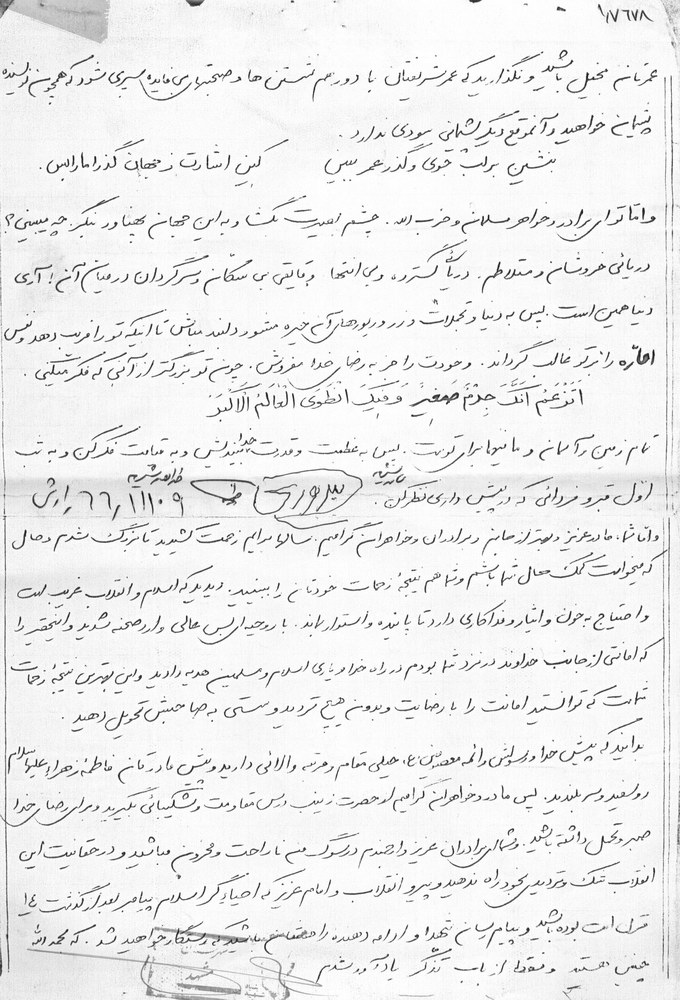 ۱۸۷٦۷۸
عمرتان بخیل باشید و نگذارید که عمر شریفتان با دور هم نشستن ها و صحبتهای بی فایده سپری شود که همچون نویسنده
پشیمان خواهید و آنموقع دیگر پشیمانی سودی ندارد.
بنشین بر لب جوی و گذر عمر ببین کین اشارت ز جهان گذرا ما را بس.
و اما تو ای برادر و خواهر مسلمان و حزب الله. چشم بصیرت بگشا و به این جهان پهناور بنگر. چه میبینی؟
دریائی خروشان و متلاطم. دریائی گسترده و بی انتها و قایقی بی سکان و سرگردان در میان آن! آری
دنیا همین است. پس به دنیا و تجملات و زرو زیورهای آن خیره مشو و دلبند مباش تا اینکه تو را فریب دهد و نفس
اماره را بر تو غالب گرداند. وجودت را جز به رضای خدا مفروش. چون تو بزرگتر از آنی که فکر میکنی.
اَتَزعَمُ اَنَّکَ جِرمٌ صَغیرٌ وَ فیکَ انطَوَی العالَمُ الاَکبَرُ
تمام زمین و آسمان و مافیها برای توست. پس به عظمت و قدرت خدا بیندیش و به قیامت فکر کن و به شب
اول قبر و فردائی که در پیش داری نظر کن. ۶۶/۱۱/۰۹
و اما شما، مادر عزیز و بهتر از جانم و برادران و خواهران گرامیم. سالها برایم زحمت کشیدید تا بزرگ شدم و حال
که میخواست کمک حال شما باشم و شما هم نتیجۀ زحمات خودتان را ببینید. دیدید که اسلام و انقلاب غریب است
و احتیاج به خون و ایثار و فداکاری دارد تا پاینده و استوار بماند. با روحیه ای بس عالی وارد صحنه شدید و اینحقیر را
که امانتی از جانب خداوند در نزد شما بودم در راه خدا و یاری اسلام و مسلمین هدیه دادید و این بهترین نتیجۀ زحمات
شماست که توانستید امانت را با رضایت و بدون هیچ تردید و سستی به صاحبش تحویل دهید.
بدانید که پیش خدا و رسولش و ائمه معصومین (ع) خیلی مقام و مرتبه والائی دارید و پیش مادرتان فاطمۀ زهراء علیها سلام
رو سفید و سر بلندید. پس مادر و خواهران گرامیم از حضرت زینب درس مقاومت و شکیبائی بگیرید و برای رضای خدا
صبر و تحمل داشته باشید. و شما ای برادران عزیز و ارجمندم در سوگ من ناراحت و محزون مباشید و در حقانیت این
انقلاب شک و تردیدی بخود راه ندهید و پیرو انقلاب و امام عزیز که احیاءگر اسلام پیامبر بعد از گذشت ۱٤
قرن است بوده باشید و پیام رسان شهدا و ادامه دهنده راهشان باشید که رستگار خواهید شد. که بحمد الله
چنین هستید و فقط از باب تذکر یادآور شدم